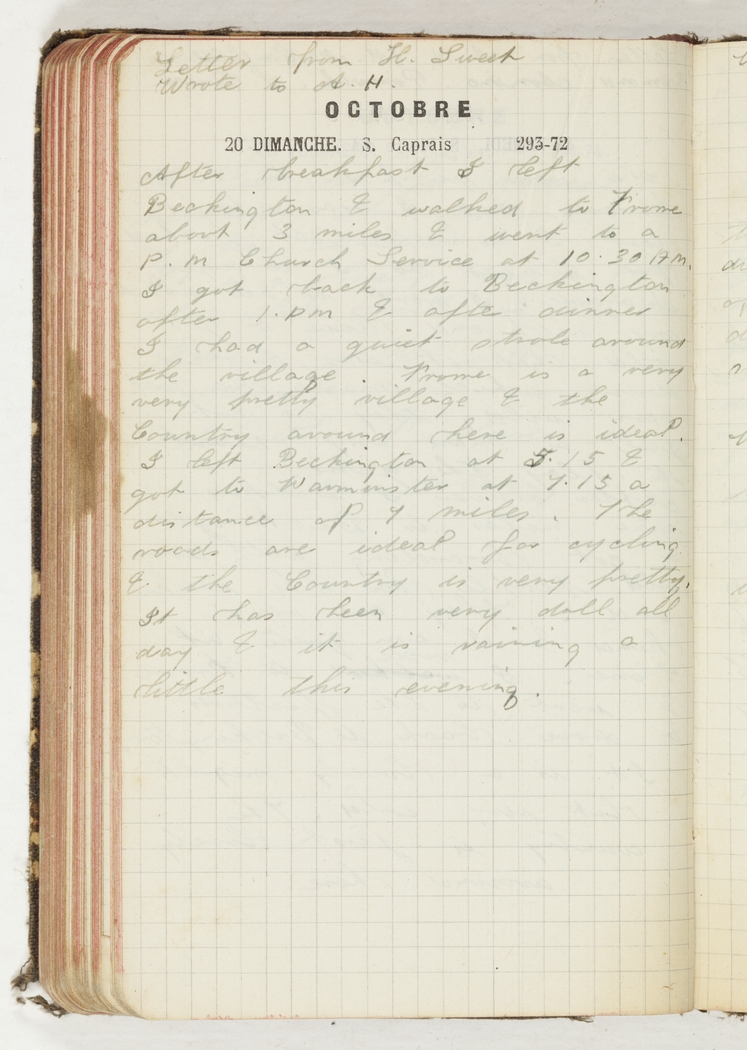 Letter from H. Sweet
Wrote to A. H.
OCTOBRE
20 DIMANCHE. S. Caprais 293-72
After breakfast I left
Beckington & walked to Frome
about 3 miles & went to a
P.M Church Service at 10.30 AM.
I got back to Beckington
after 1.pm & afte dinner
I had a quiet strole around
the village. Frome is a very
very pretty village & the
Country around here is ideal.
I left Beckington at 5.15 &
got to Warminster at 7.15 a
distance of 7 miles. The
roads are ideal for cycling
& the Country is very pretty.
It has been very dull all
day & it is raining a
little this evening.